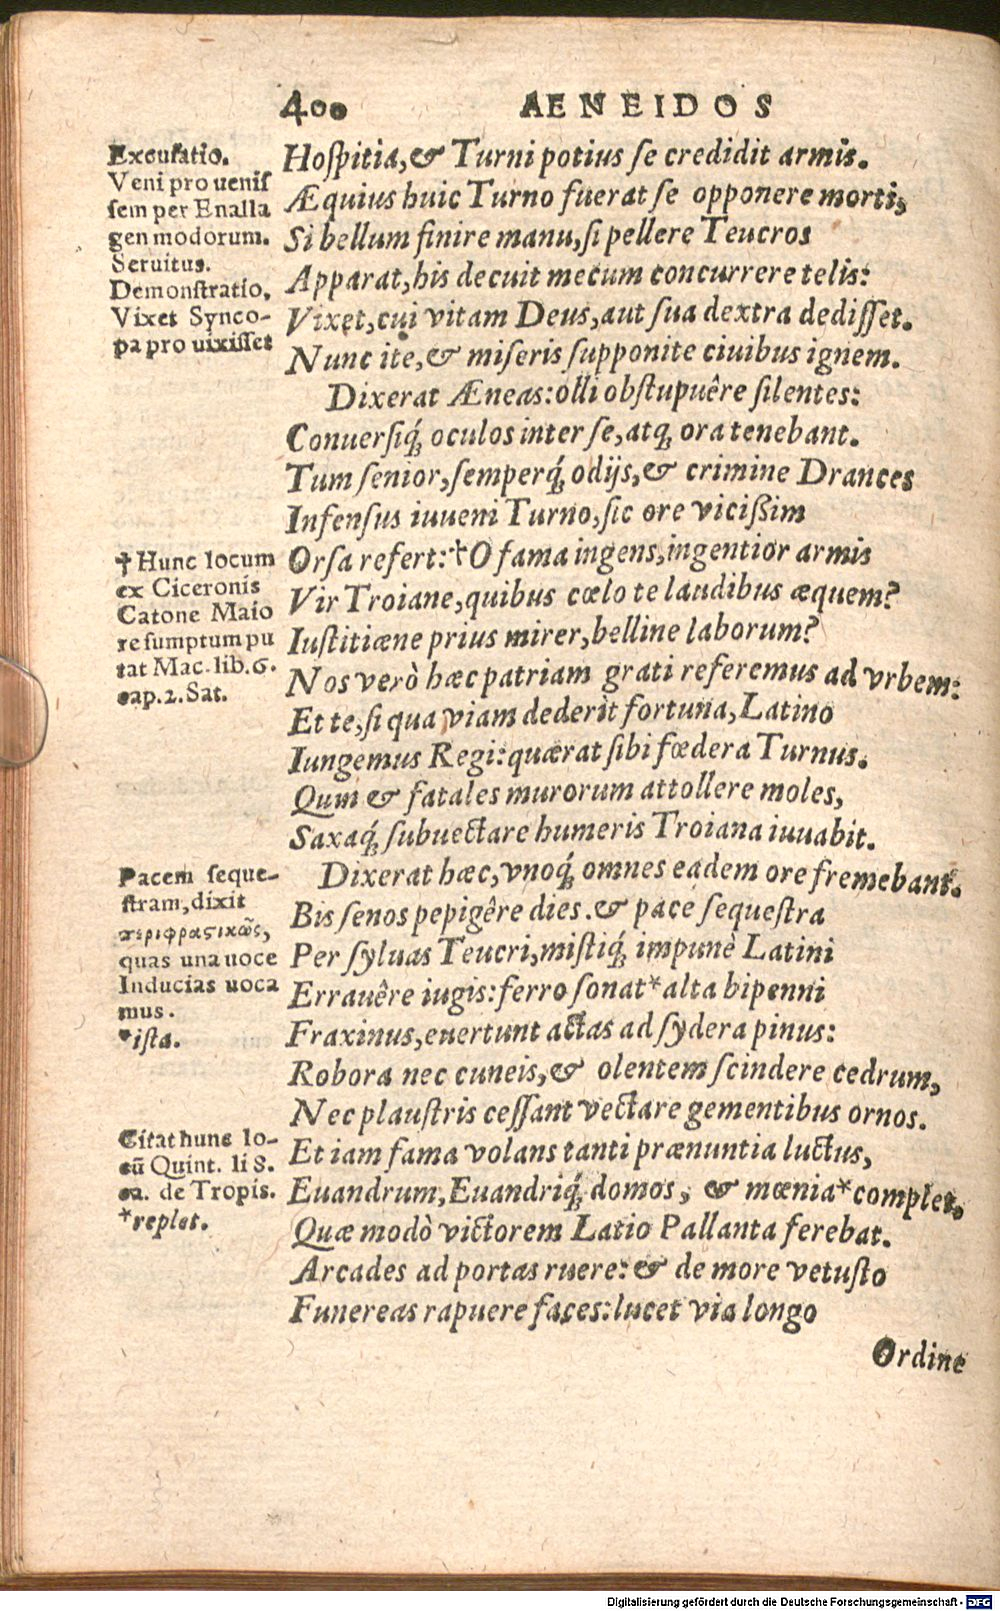 400 AENEIDOS
Excusatio.
Veni pro uenis
sem per Enalla
gen modorum.
Seruitus.
Demonstratio,
Vixet Synco-
pa pro uixisset
Hoſpitia, & Turni potius ſe credidit armis.
Æquius huic Turno fuerat ſe opponere morti,
Si bellum finire manu, ſi pellere Teucros
Apparat, his decuit mecum concurrere telis:
Vixet, cui vitam Deus, aut ſua dextra dediſſet.
Nunc ite, & miſeris ſupponite ciuibus ignem.
Dixerat Æneas: olli obſtupuêre ſilentes:
Conuerſiq́; oculos inter ſe, atq; ora tenebant.
Tum ſenior, ſemperq́; odijs, & crimine Drances
Infenſus iuueni Turno, ſic ore vicißim
† Hunc locum
ex Ciceronis
Catone Maio
re ſumptum pu
tat Mac. lib. 6.
cap. 2. Sat.
Orſa refert: † O fama ingens, ingentior armis
Vir Troiane, quibus cœlo te laudibus æquem?
Iuſtitiæne prius mirer, belline laborum?
Nos verò hæc patriam grati referemus ad vrbem:
Et te, ſi qua viam dederit fortuna, Latino
Iungemus Regi: quærat ſibi fœdera Turnus.
Quin & fatales murorum attollere moles,
Saxaq́; ſubuectare humeris Troiana iuuabit.
Pacem ſeque-
ſtram, dixit
περιφραστικῶς,
quas una uoce
Inducias uoca
mus.
*iſta.
Dixerat hæc, vnoq́; omnes eadem ore fremebant.
Bis ſenos pepigêre dies. & pace ſequeſtra
Per ſyluas Teucri, miſtiq́; impunè Latini
Errauêre iugis: ferro ſonat * alta bipenni
Fraxinus, euertunt actas ad ſydera pinus:
Robora nec cuneis, & olentem ſcindere cedrum,
Nec plauſtris ceſſant vectare gementibus ornos.
Citat hunc lo-
cū Quint. li 8.
ca. de Tropis.
*replet.
Et iam fama volans tanti prænuntia luctus,
Euandrum, Euandriq́; domos, & mœnia * complet.
Quæ modò victorem Latio Pallanta ferebat.
Arcades ad portas ruere: & de more vetuſto
Funereas rapuere faces: lucet via longo
Ordine
Digitalisierung gefördert durch die Deutsche Forschungsgemeinschaft - DFG